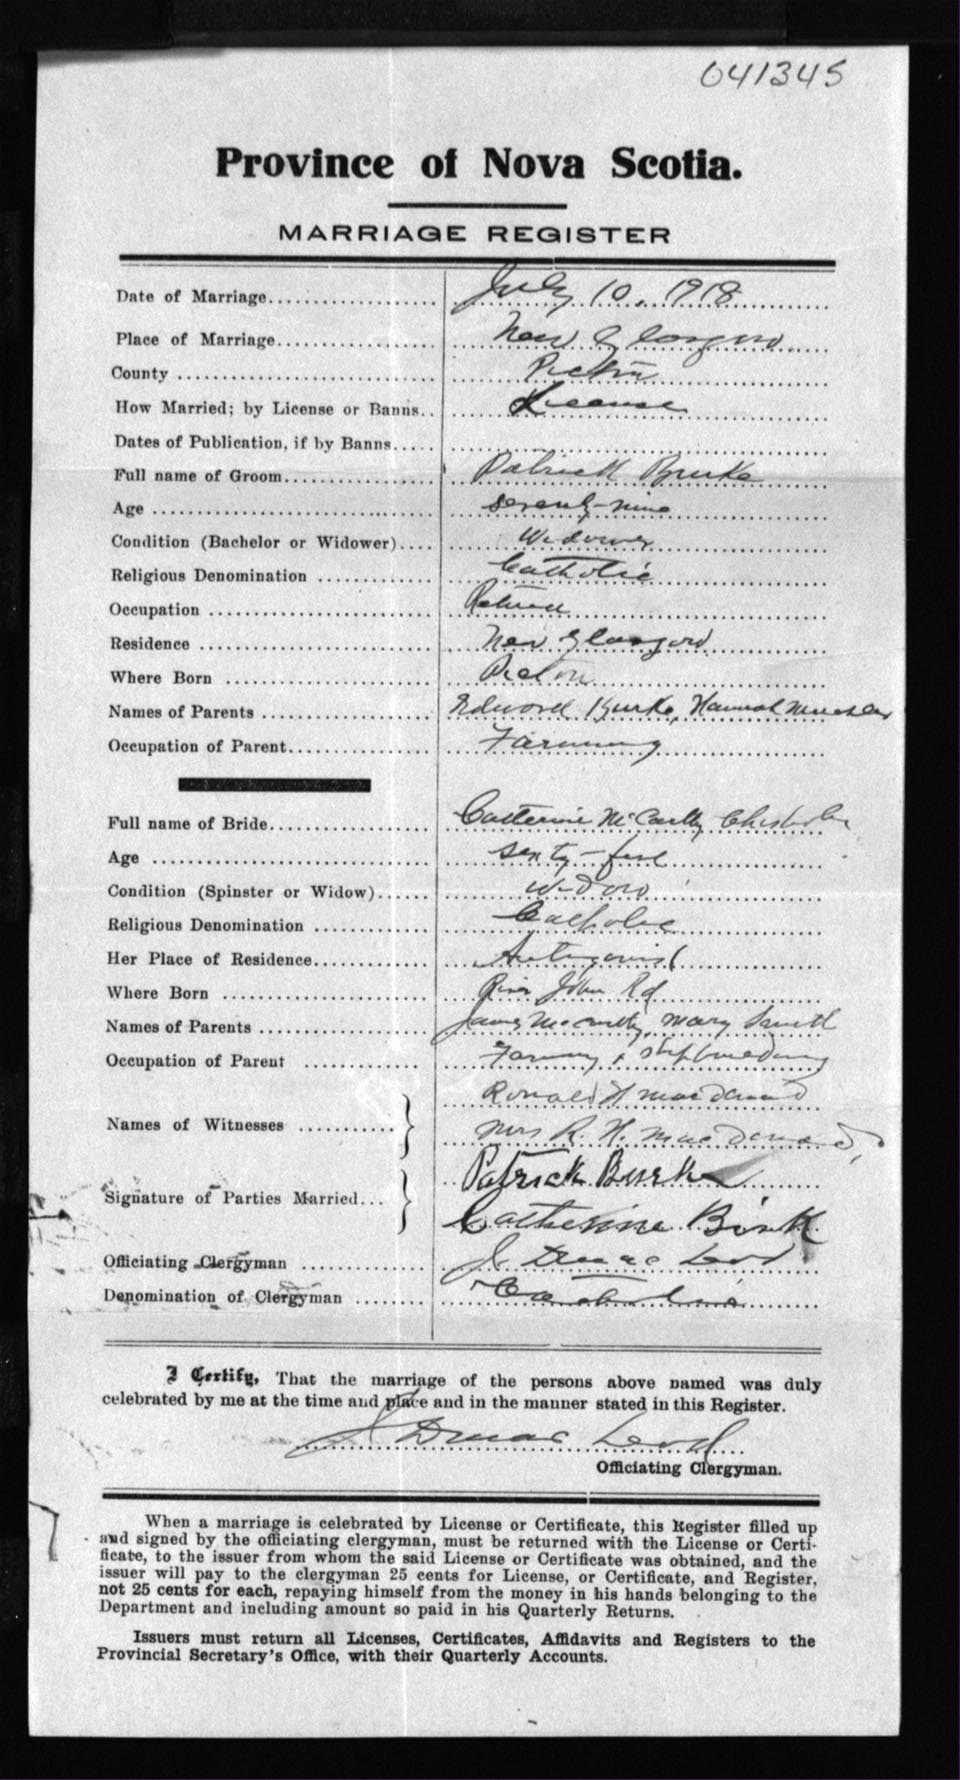 041345
Province of Nova Scotia.
MARRIAGE REGISTER
Date of Marriage.................. July 10, 1918
Place of Marriage.................. New Glasgow
County .................. Pictou
How Married; by License or Banns.. License
Dates of Publication, if by Banns.....
Full name of Groom.................. Patrick Burke
Age .................. seventy-nine
Condition (Bachelor or Widower).... Widower
Religious Denomination .................. Catholic
Occupation .................. Retired
Residence .................. New Glasgow
Where Born .................. Pictou
Names of Parents .................. Edward Burke, Hannah
Occupation of Parent.................. Farming
Full name of Bride.................. Catherine McCarthy Chisholm
Age .................. sixty-five
Condition (Spinster or Widow)...... Widow
Religious Denomination .................. Catholic
Her Place of Residence.................. Antigonish
Where Born .................. River John Rd
Names of Parents .................. James McCarthy, Mary Smith
Occupation of Parent .................. Farming & shipbuilding
Names of Witnesses .................. Ronald H MacDonald
Mrs R. H. MacDonald
Signature of Parties Married... Patrick Burke
Catherine Birk
Officiating Clergyman .................. J. D. MacLeod
Denomination of Clergyman ........ Catholic
I Certify, That the marriage of the persons above named was duly
celebrated by me at the time and place and in the manner stated in this Register.
J. D. MacLeod
Officiating Clergyman.
When a marriage is celebrated by License or Certificate, this Register filled up
and signed by the officiating clergyman, must be returned with the License or Certi-
ficate, to the issuer from whom the said License or Certificate was obtained, and the
issuer will pay to the clergyman 25 cents for License, or Certificate, and Register,
not 25 cents for each, repaying himself from the money in his hands belonging to the
Department and including amount so paid in his Quarterly Returns.
Issuers must return all Licenses, Certificates, Affidavits and Registers to the
Provincial Secretary's Office, with their Quarterly Accounts.